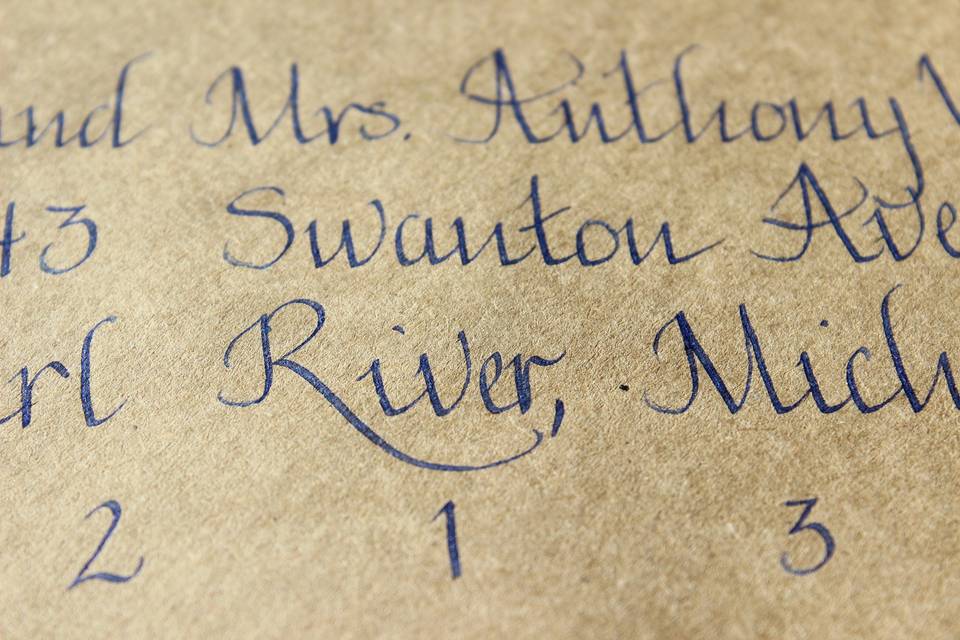 and Mrs. Anthony
43 Swanton Ave
arl River, Mich
2 1 3